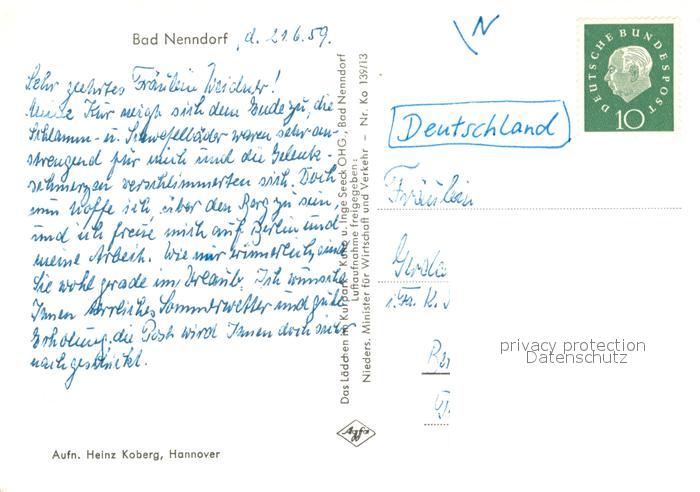 Bad Nenndorf, d. 21.6.59.
Sehr geehrtes Fräulein Weidner!
Meine Kur neigt sich dem Ende zu, die
Schlamm- u. Schwefelbäder waren sehr an-
strengend für mich und die Gelenk-
schmerzen verschlimmerten sich. Doch
nun hoffe ich, über den Berg zu sein,
und ich freue mich auf Berlin und
meine Arbeit. Wie mir erinnerlich, sind
Sie wohl gerade im Urlaub. Ich wünsche
Ihnen herrliches Sommerwetter und gute
Erholung, die Post wird Ihnen doch sicher
nachgeschickt.
Aufn. Heinz Koberg, Hannover
Das Lädchen im Kurpark · Kuno u. Inge Seeck OHG., Bad Nenndorf
Luftaufnahme freigegeben:
Nieders. Minister für Wirtschaft und Verkehr – Nr. Ko 139/13
Agfa
N
DEUTSCHE BUNDESPOST
10
Deutschland
Fräulein
Gerda
i. Fa. K.
privacy protection
Datenschutz